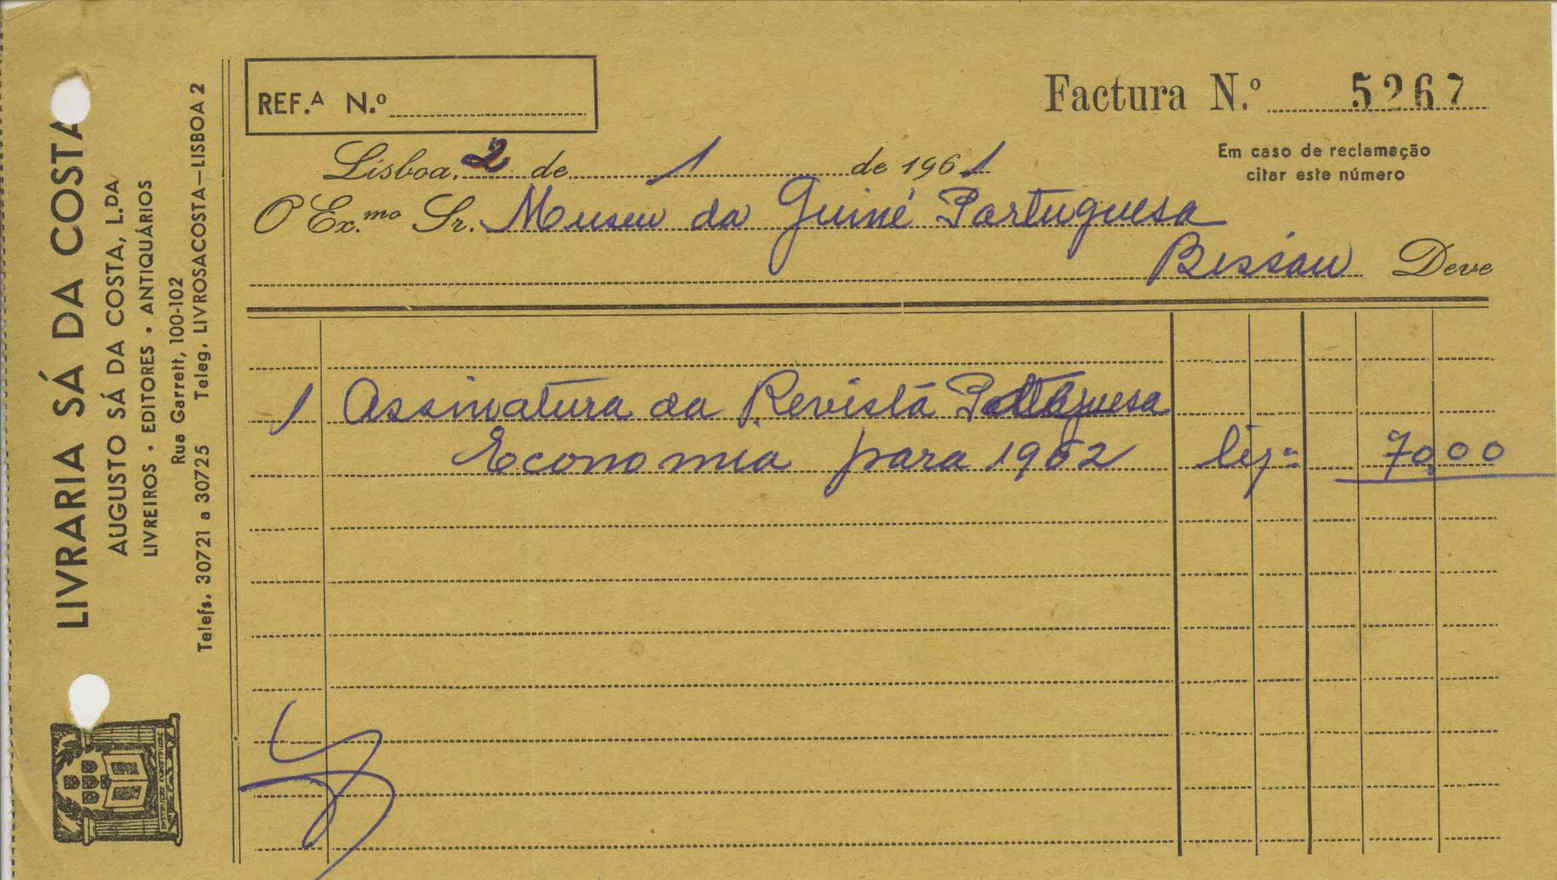 LIVRARIA SÁ DA COSTA
AUGUSTO SÁ DA COSTA, L.DA
LIVREIROS • EDITORES • ANTIQUÁRIOS
Rua Garrett, 100-102
Telefs. 30721 a 30725 Teleg. LIVROSACOSTA—LISBOA 2
REF.A N.º
Factura N.º 5267
Em caso de reclamação
citar este número
Lisboa, 2 de 1 de 1961
O Ex.mo Sr. Museu da Guiné Portuguesa
Bissau Deve
1 Assinatura da Revista Portuguesa
Economia para 1962 líq. 70,00